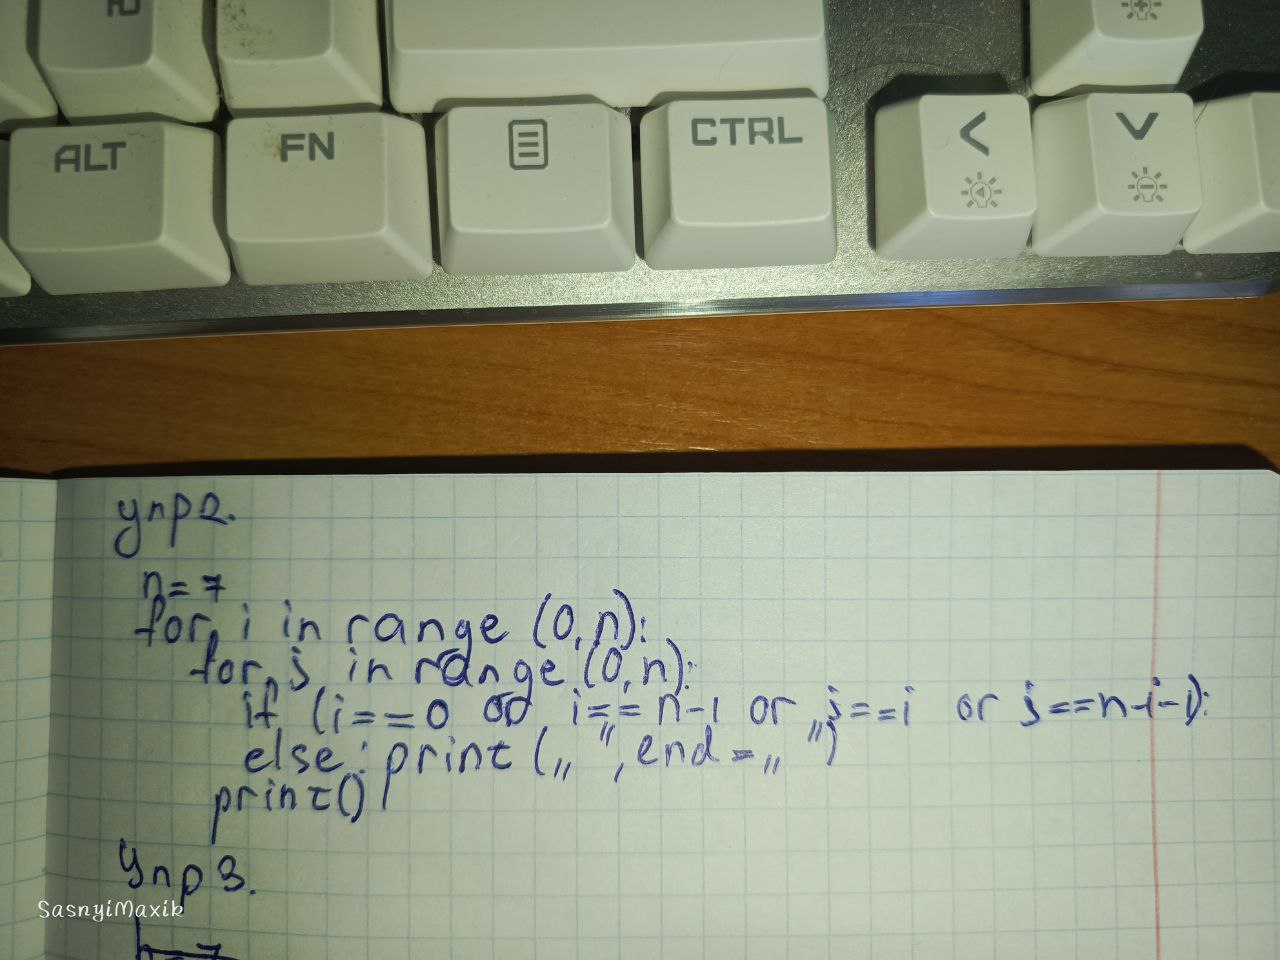 ALT
FN
CTRL
упр2.
n=7
for i in range (0,n):
for j in range (0,n):
if (i==0 or i==n-1 or j==i or j==n-i-1):
else: print („ ", end=„ ")
print()
Упр 3.
SasnyiMaxik